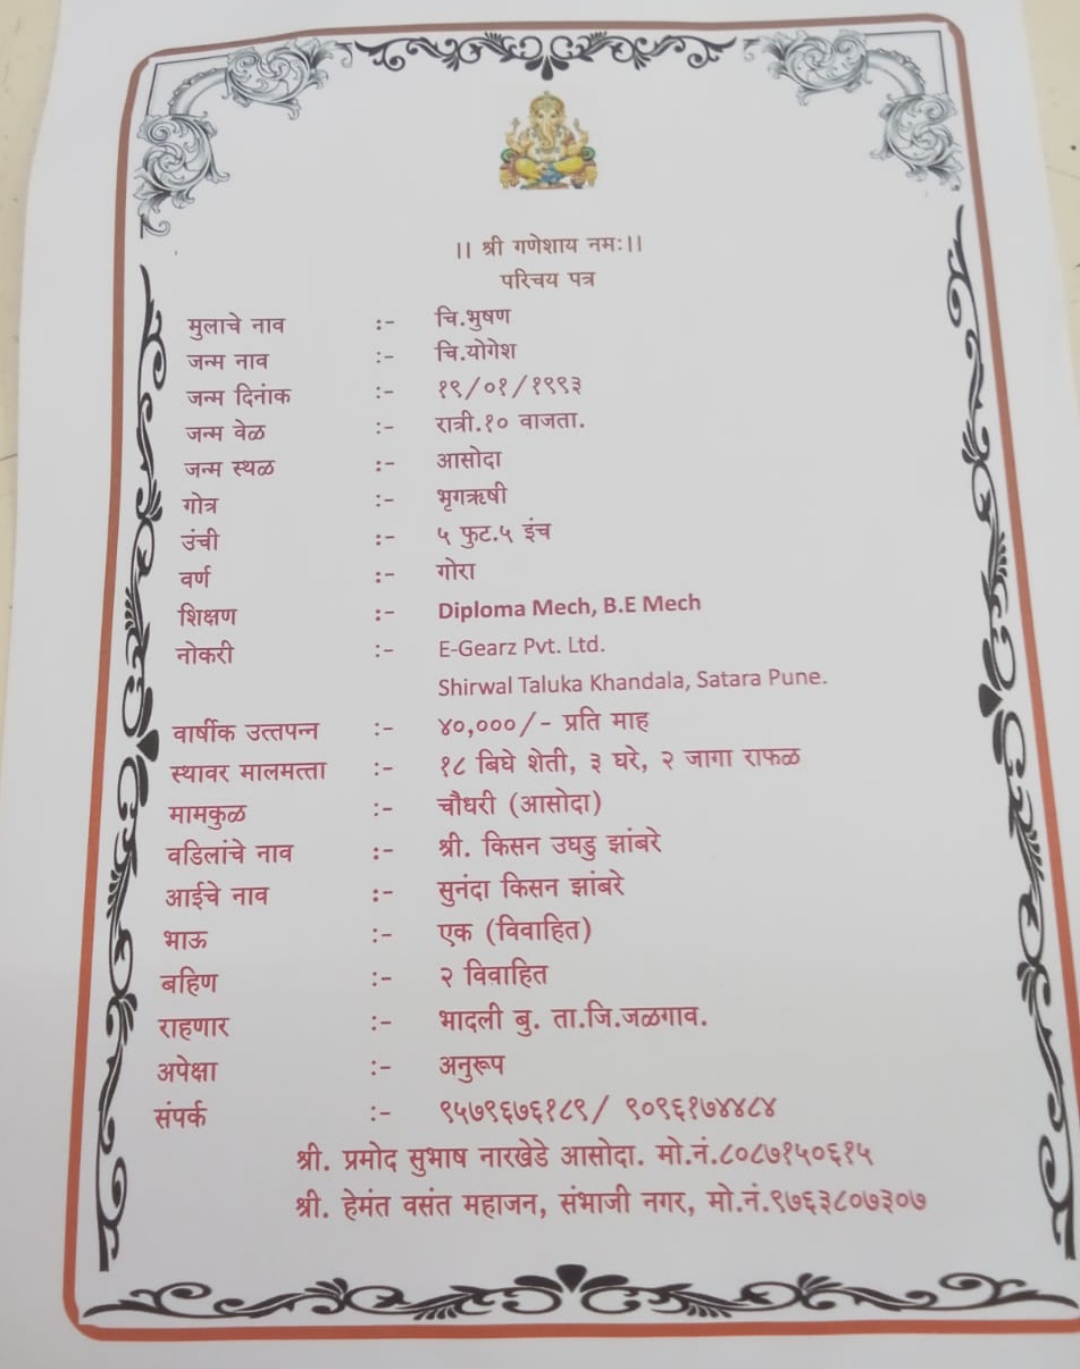 ।। श्री गणेशाय नमः।।
परिचय पत्र
मुलाचे नाव :- चि.भुषण
जन्म नाव :- चि.योगेश
जन्म दिनांक :- १९/०१/१९९३
जन्म वेळ :- रात्री.१० वाजता.
जन्म स्थळ :- आसोदा
गोत्र :- भृगऋषी
उंची :- ५ फुट.५ इंच
वर्ण :- गोरा
शिक्षण :- Diploma Mech, B.E Mech
नोकरी :- E-Gearz Pvt. Ltd.
Shirwal Taluka Khandala, Satara Pune.
वार्षीक उत्तपन्न :- ४०,०००/- प्रति माह
स्थावर मालमत्ता :- १८ बिघे शेती, ३ घरे, २ जागा राफळ
मामकुळ :- चौधरी (आसोदा)
वडिलांचे नाव :- श्री. किसन उघडु झांबरे
आईचे नाव :- सुनंदा किसन झांबरे
भाऊ :- एक (विवाहित)
बहिण :- २ विवाहित
राहणार :- भादली बु. ता.जि.जळगाव.
अपेक्षा :- अनुरूप
संपर्क :- ९५७९६७६१८९/ ९०९६१७४४८४
श्री. प्रमोद सुभाष नारखेडे आसोदा. मो.नं.८०८७१५०६१५
श्री. हेमंत वसंत महाजन, संभाजी नगर, मो.नं.९७६३८०७३०७